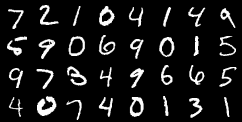 7 2 1 0 4 1 4 9
5 9 0 6 9 0 1 5
9 7 3 4 9 6 6 5
4 0 7 4 0 1 3 1